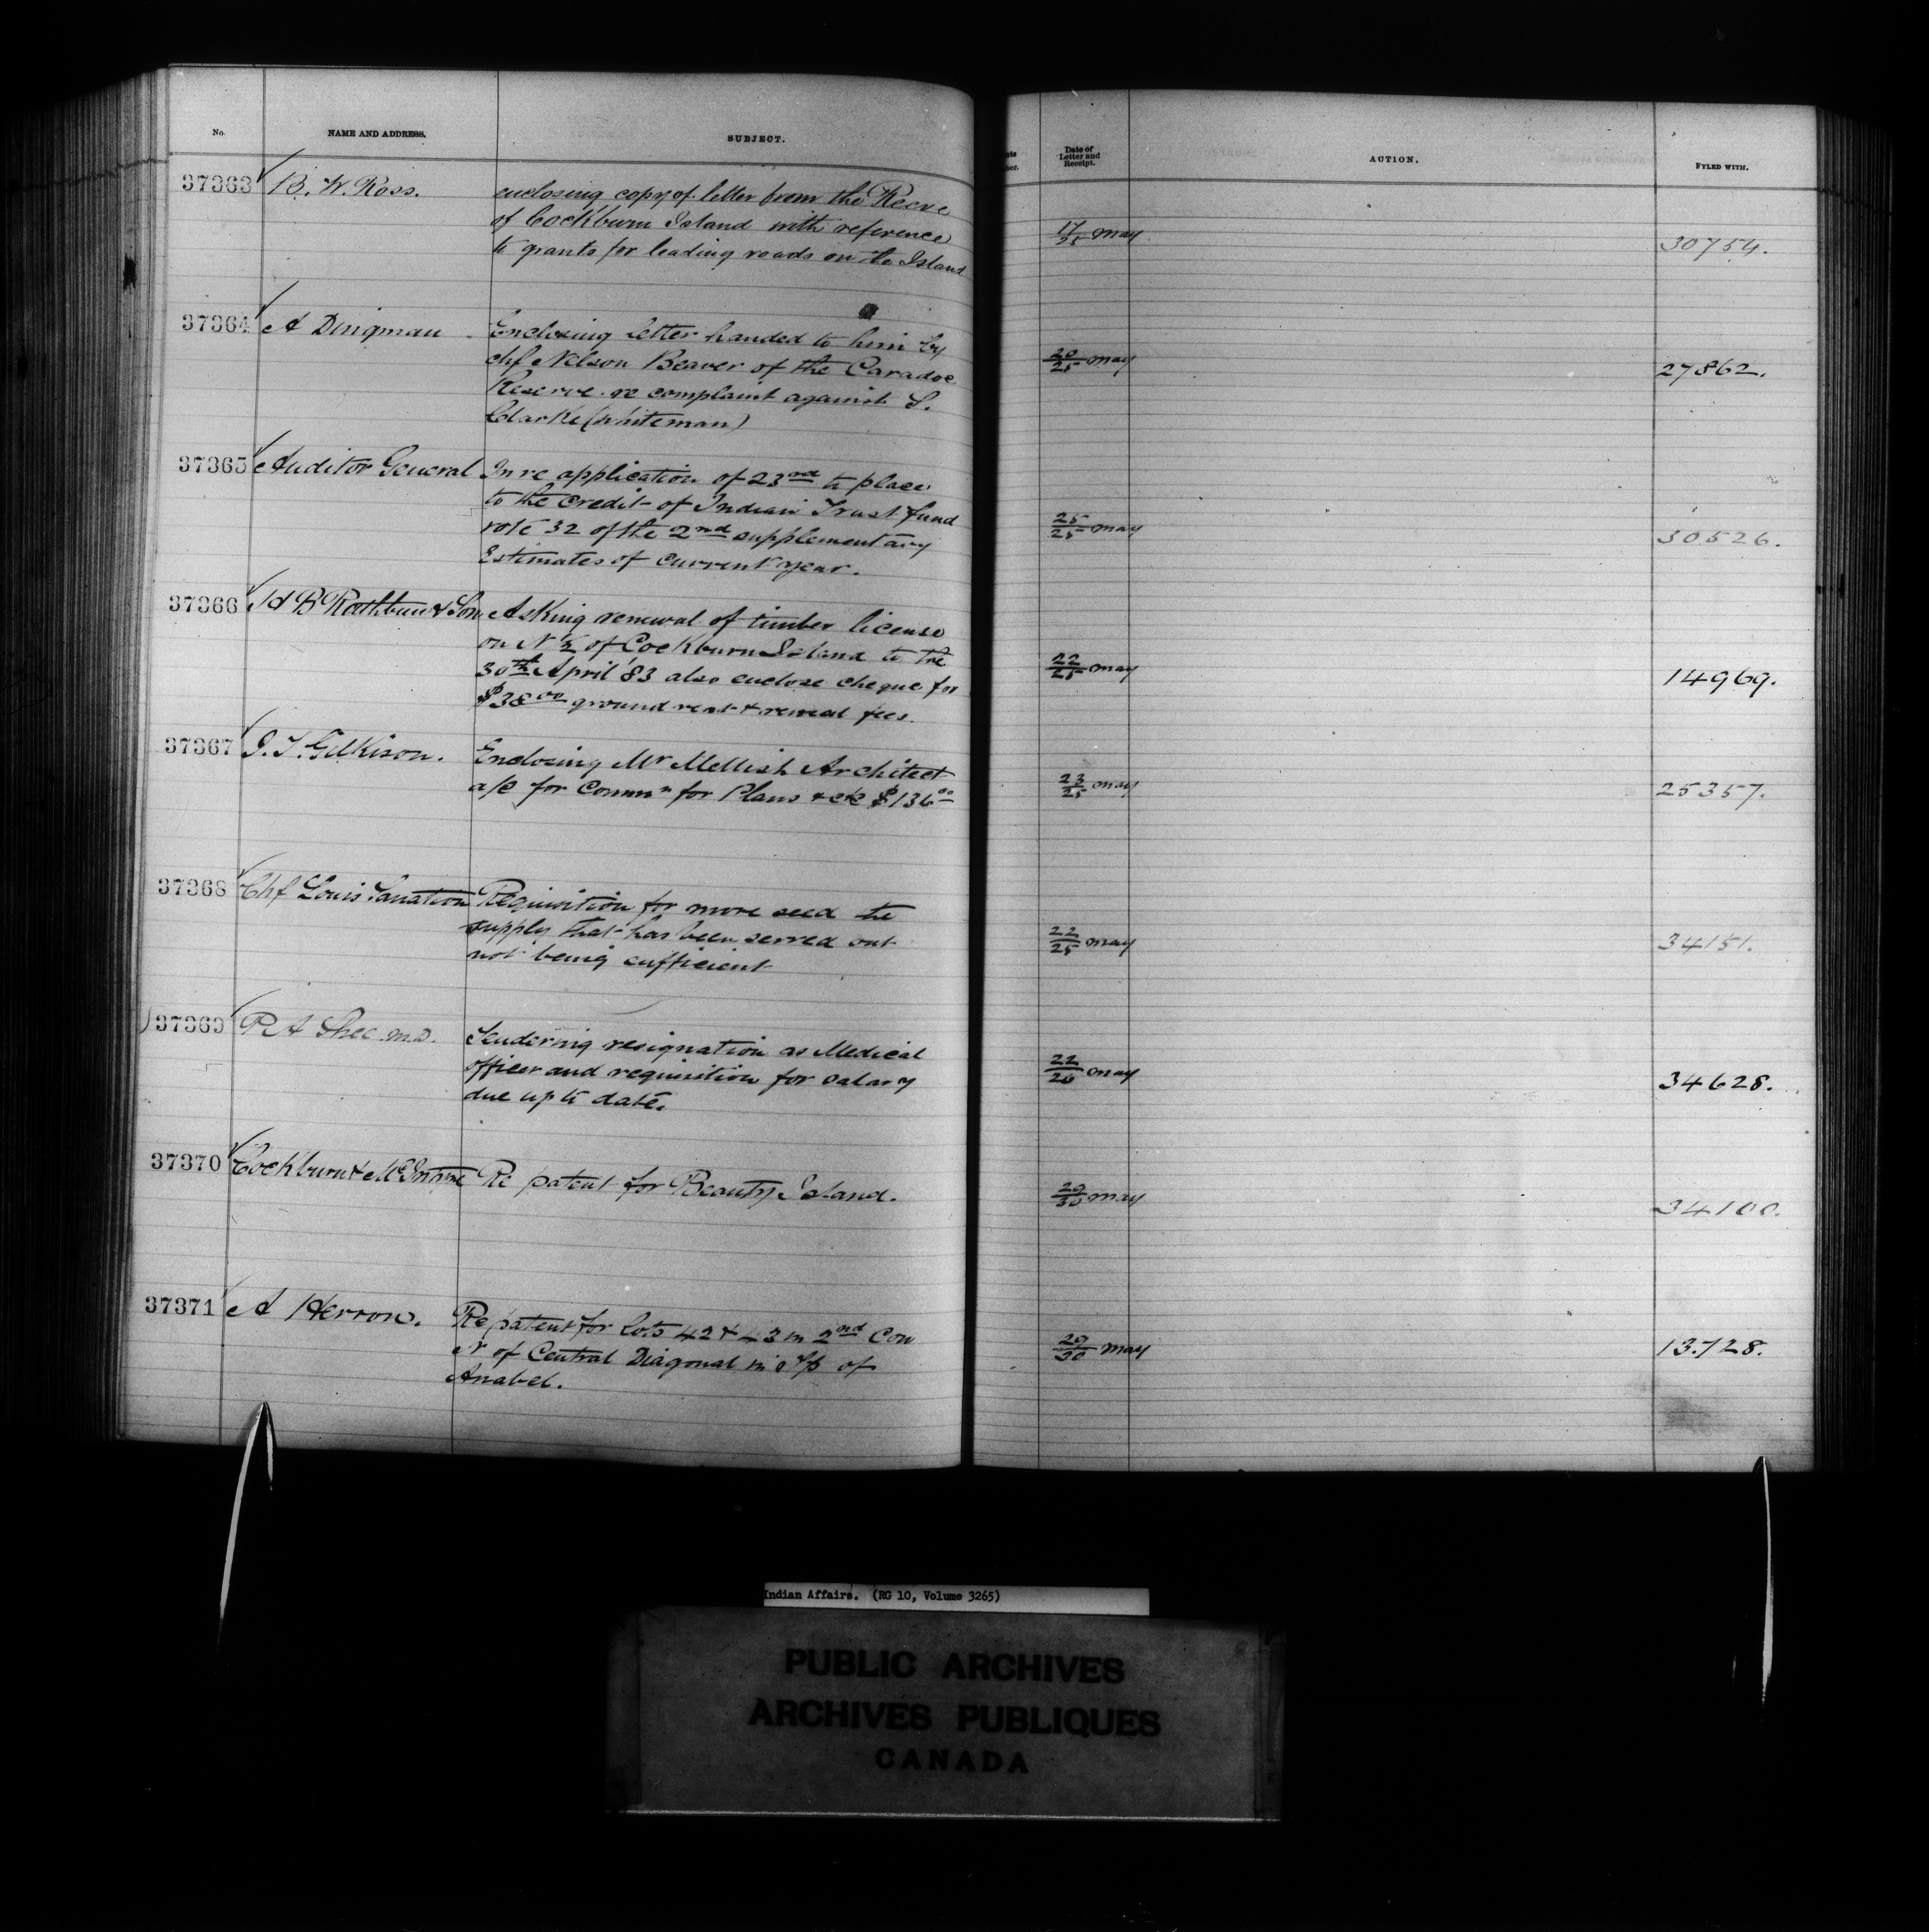 No. NAME AND ADDRESS. SUBJECT. Date of Letter and Receipt. ACTION. FYLED WITH.
37363 B. W. Ross. enclosing copy of letter from the Reeve
of Cockburn Island with reference
to grants for leading roads on the Island
17/25 May 30754.
37364 A Dingman Enclosing letter handed to him by
Chf Nelson Beaver of the Caradoc
Reserve re complaint against S.
Clarke (whiteman)
20/25 May 27862.
37365 Auditor General In re application of 23rd to place
to the credit of Indian Trust fund
vote 32 of the 2nd supplementary
Estimates of current year.
25/25 May 30526.
37366 H B Rathbun & Son Asking renewal of timber license
on N ½ of Cockburn Island to the
30th April '83 also enclose cheque for
$38 00 ground rent & renewal fees.
22/25 May 14969.
37367 J. T. Gilkison. Enclosing Mr Mellish Architect
a/c for Commn for Plans &c &c $136 00
23/25 May 25357.
37368 Chf Louis Requisition for more seed the
supply that has been served out
not being sufficient
22/25 May 34151.
37369 R A Shee M.D. Tendering resignation as Medical
officer and requisition for salary
due up to date.
22/26 May 34628.
37370 Cockburn & McIntyre Re patent for Beauty Island.
29/30 May 34100.
37371 A Herron. Re patent for Lots 42 & 43 in 2nd Con
N of Central Diagonal in Tp of
Anabel.
29/30 May 13.728.
Indian Affairs. (RG 10, Volume 3265)
PUBLIC ARCHIVES
ARCHIVES PUBLIQUES
CANADA